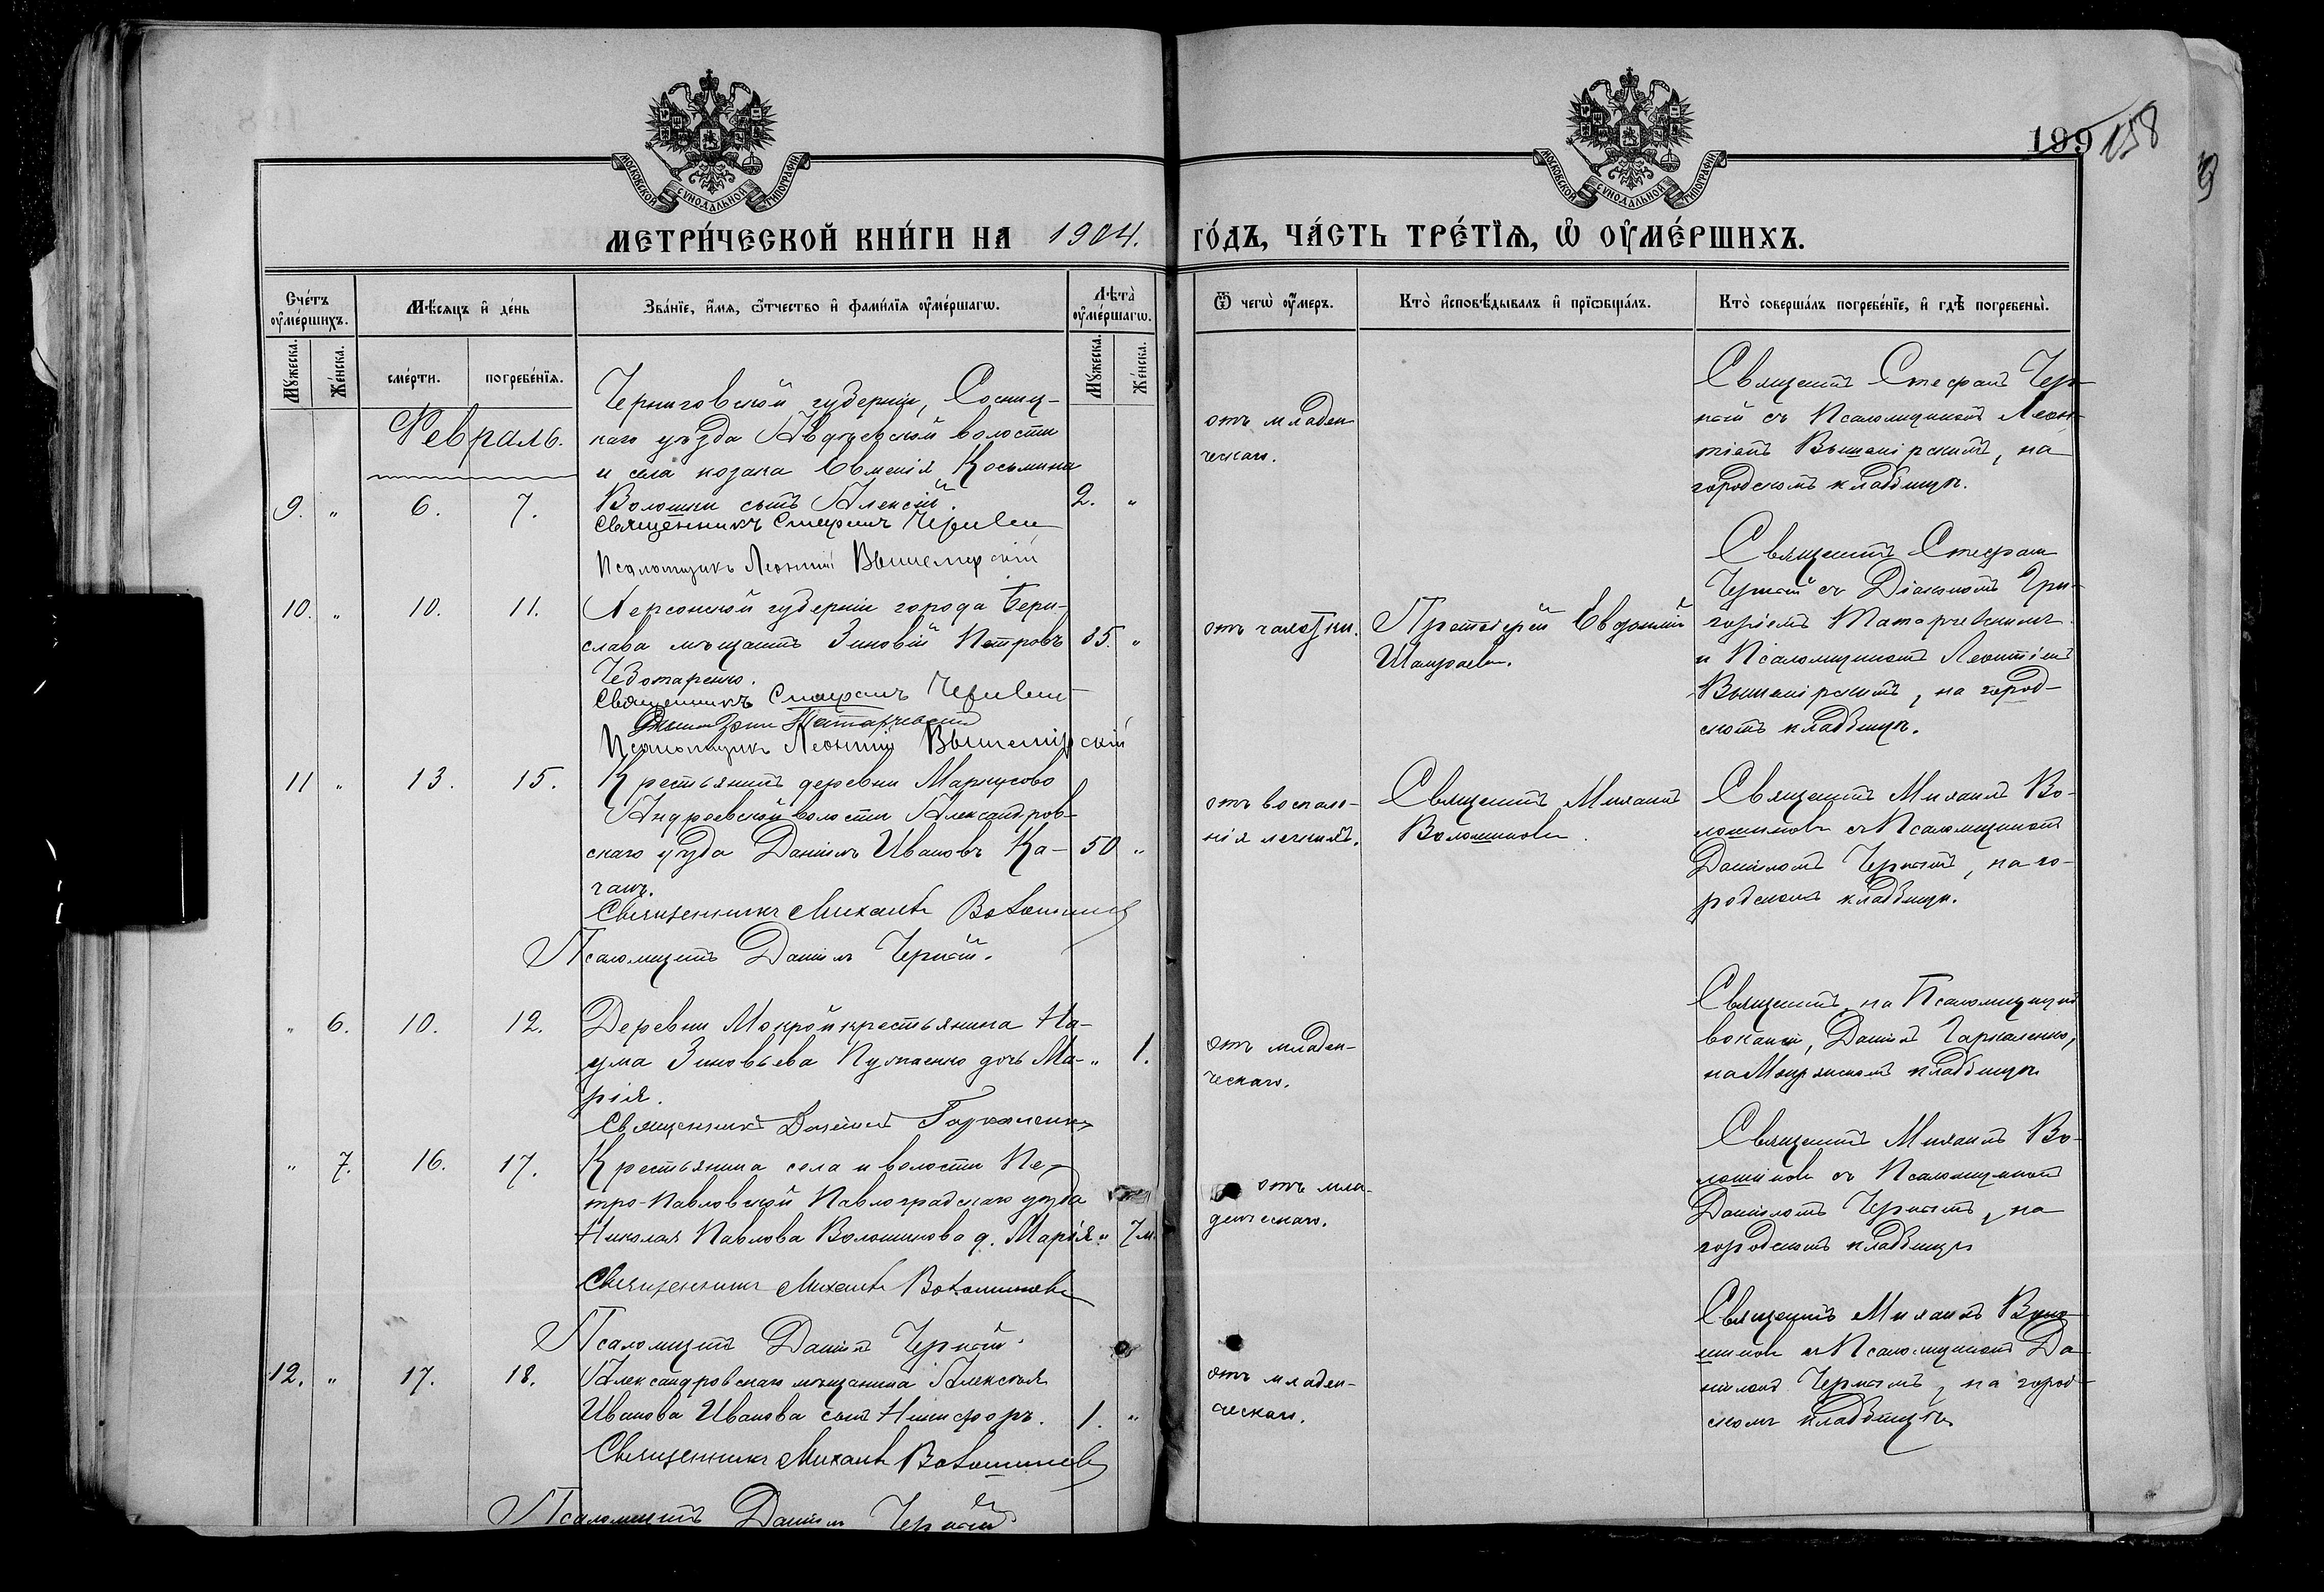 МОСКОВСКОЙ СѴНОДАЛЬНОЙ ТИПОГРАФІИ
МОСКОВСКОЙ СѴНОДАЛЬНОЙ ТИПОГРАФІИ
199 158
МЕТРИ́ЧЕСКОЙ КНИ́ГИ НА 1904. ГО́ДЪ, ЧА́СТЬ ТРЕ́ТЇѦ, Ѡ ОУМЕ́РШИХЪ.
Сче́тъ оуме́ршихъ.
Мѣ́сяцъ и де́нь
Зва́нїе, и́мѧ, ѻ́тчество и фами́лїѧ оуме́ршагѡ.
Лѣта̀ оуме́ршагѡ.
Ѿ чегѡ̀ оу́меръ.
Кто̀ и҆сповѣ́дывалъ и прїѡбща́лъ.
Кто̀ соверша́лъ погребе́нїе, и гдѣ̀ погребены̀.
Мꙋ́жеска.
Же́нска.
сме́рти.
погребе́нїѧ.
Мꙋ́жеска.
Же́нска.
Февраль.
Черниговской губерніи, Сосниц-
каго уѣзда Авдѣевской волости
и села козака Евменія Косьмина
9. " 6. 7. Волошки сынъ Алексій. 2. "
Священникъ Стефанъ Черный
Псаломщикъ Леонтій Вышемірскій
отъ младен
ческаго.
Священникъ Стефанъ Чер-
ный съ Псаломщикомъ Леон-
тіемъ Вышемірскимъ, на
городскомъ кладбищѣ.
10. " 10. 11. Херсонской губерніи города Бери-
слава мѣщанинъ Зиновій Петровъ 85. "
Чеботаренко.
Священникъ Стефанъ Черный
Псаломщикъ Леонтій Вышемірскій
отъ чахотки.
Протоіерей Евфимій
Священникъ Стефанъ
Черный съ Діакономъ Гри-
горіемъ Татарчевскимъ
и Псаломщикомъ Леонтіемъ
Вышемірскимъ, на город-
скомъ кладбищѣ.
11 " 13. 15. Крестьянинъ деревни Маркусово
Андреевской волости Александров-
скаго уѣзда Даніилъ Ивановъ Ка- 50 "
чанъ.
Священникъ Михаилъ Волошиновъ
Псаломщикъ Даніилъ Черный.
отъ воспале-
нія легкихъ.
Священникъ Михаилъ
Волошиновъ.
Священникъ Михаилъ Во-
лошиновъ съ Псаломщикомъ
Даніиломъ Чернымъ, на го-
родскомъ кладбищѣ.
" 6. 10. 12. Деревни Мокрой крестьянина На-
ума Зиновьева дочь Ма- " 1.
рія.
Священникъ Даніилъ Гаркаленко
отъ младен-
ческаго.
Священникъ, на Псаломщицкой
вакансіи, Даніилъ Гаркаленко,
на Мокрянскомъ кладбищѣ
" 7. 16. 17. Крестьянина села и волости Пе-
тро-Павловской Павлоградскаго уѣзда
Николая Павлова Волошинова д. Марія " 7 м.
Священникъ Михаилъ Волошиновъ
Псаломщикъ Даніилъ Черный.
отъ мла-
денческаго.
Священникъ Михаилъ Во-
лошиновъ съ Псаломщикомъ
Даніиломъ Чернымъ, на
городскомъ кладбищѣ
12. " 17. 18. Александровскаго мѣщанина Алексѣя
Иванова Иванова сынъ Никифоръ. 1. "
Священникъ Михаилъ Волошиновъ
Псаломщикъ Даніилъ Черный
отъ младен-
ческаго.
Священникъ Михаилъ Воло-
шиновъ съ Псаломщикомъ Да-
ніиломъ Чернымъ, на город-
скомъ кладбищѣ